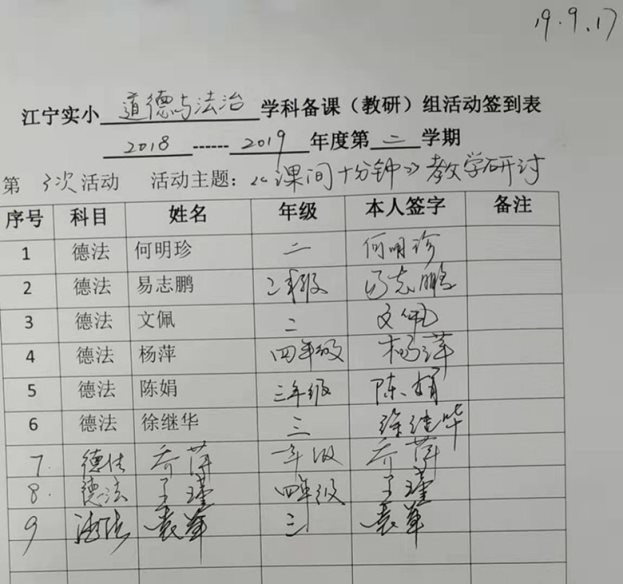 19.9.17
江宁实小 道德与法治 学科备课（教研）组活动签到表
2018 ------ 2019 年度第 二 学期
第 3次 活动 活动主题：《课间十分钟》教学研讨
序号 科目 姓名 年级 本人签字 备注
1 德法 何明珍 二 何明珍
2 德法 易志鹏 二年级 易志鹏
3 德法 文佩 二 文佩
4 德法 杨萍 四年级 杨萍
5 德法 陈娟 三年级 陈娟
6 德法 徐继华 三 徐继华
7. 德法 乔萍 一年级 乔萍
8. 德法 王瑾 四年级 王瑾
9 德法 袁军 三 袁军